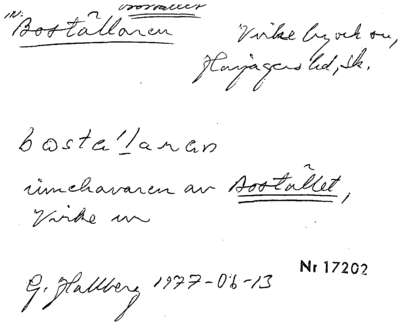 IN:
Boställaren
Virke by ock sn,
Harjagers hd, Sk.
bosta'laran
innehavaren av Bostället,
Virke sn
G. Hallberg 1977-06-13
Nr 17202